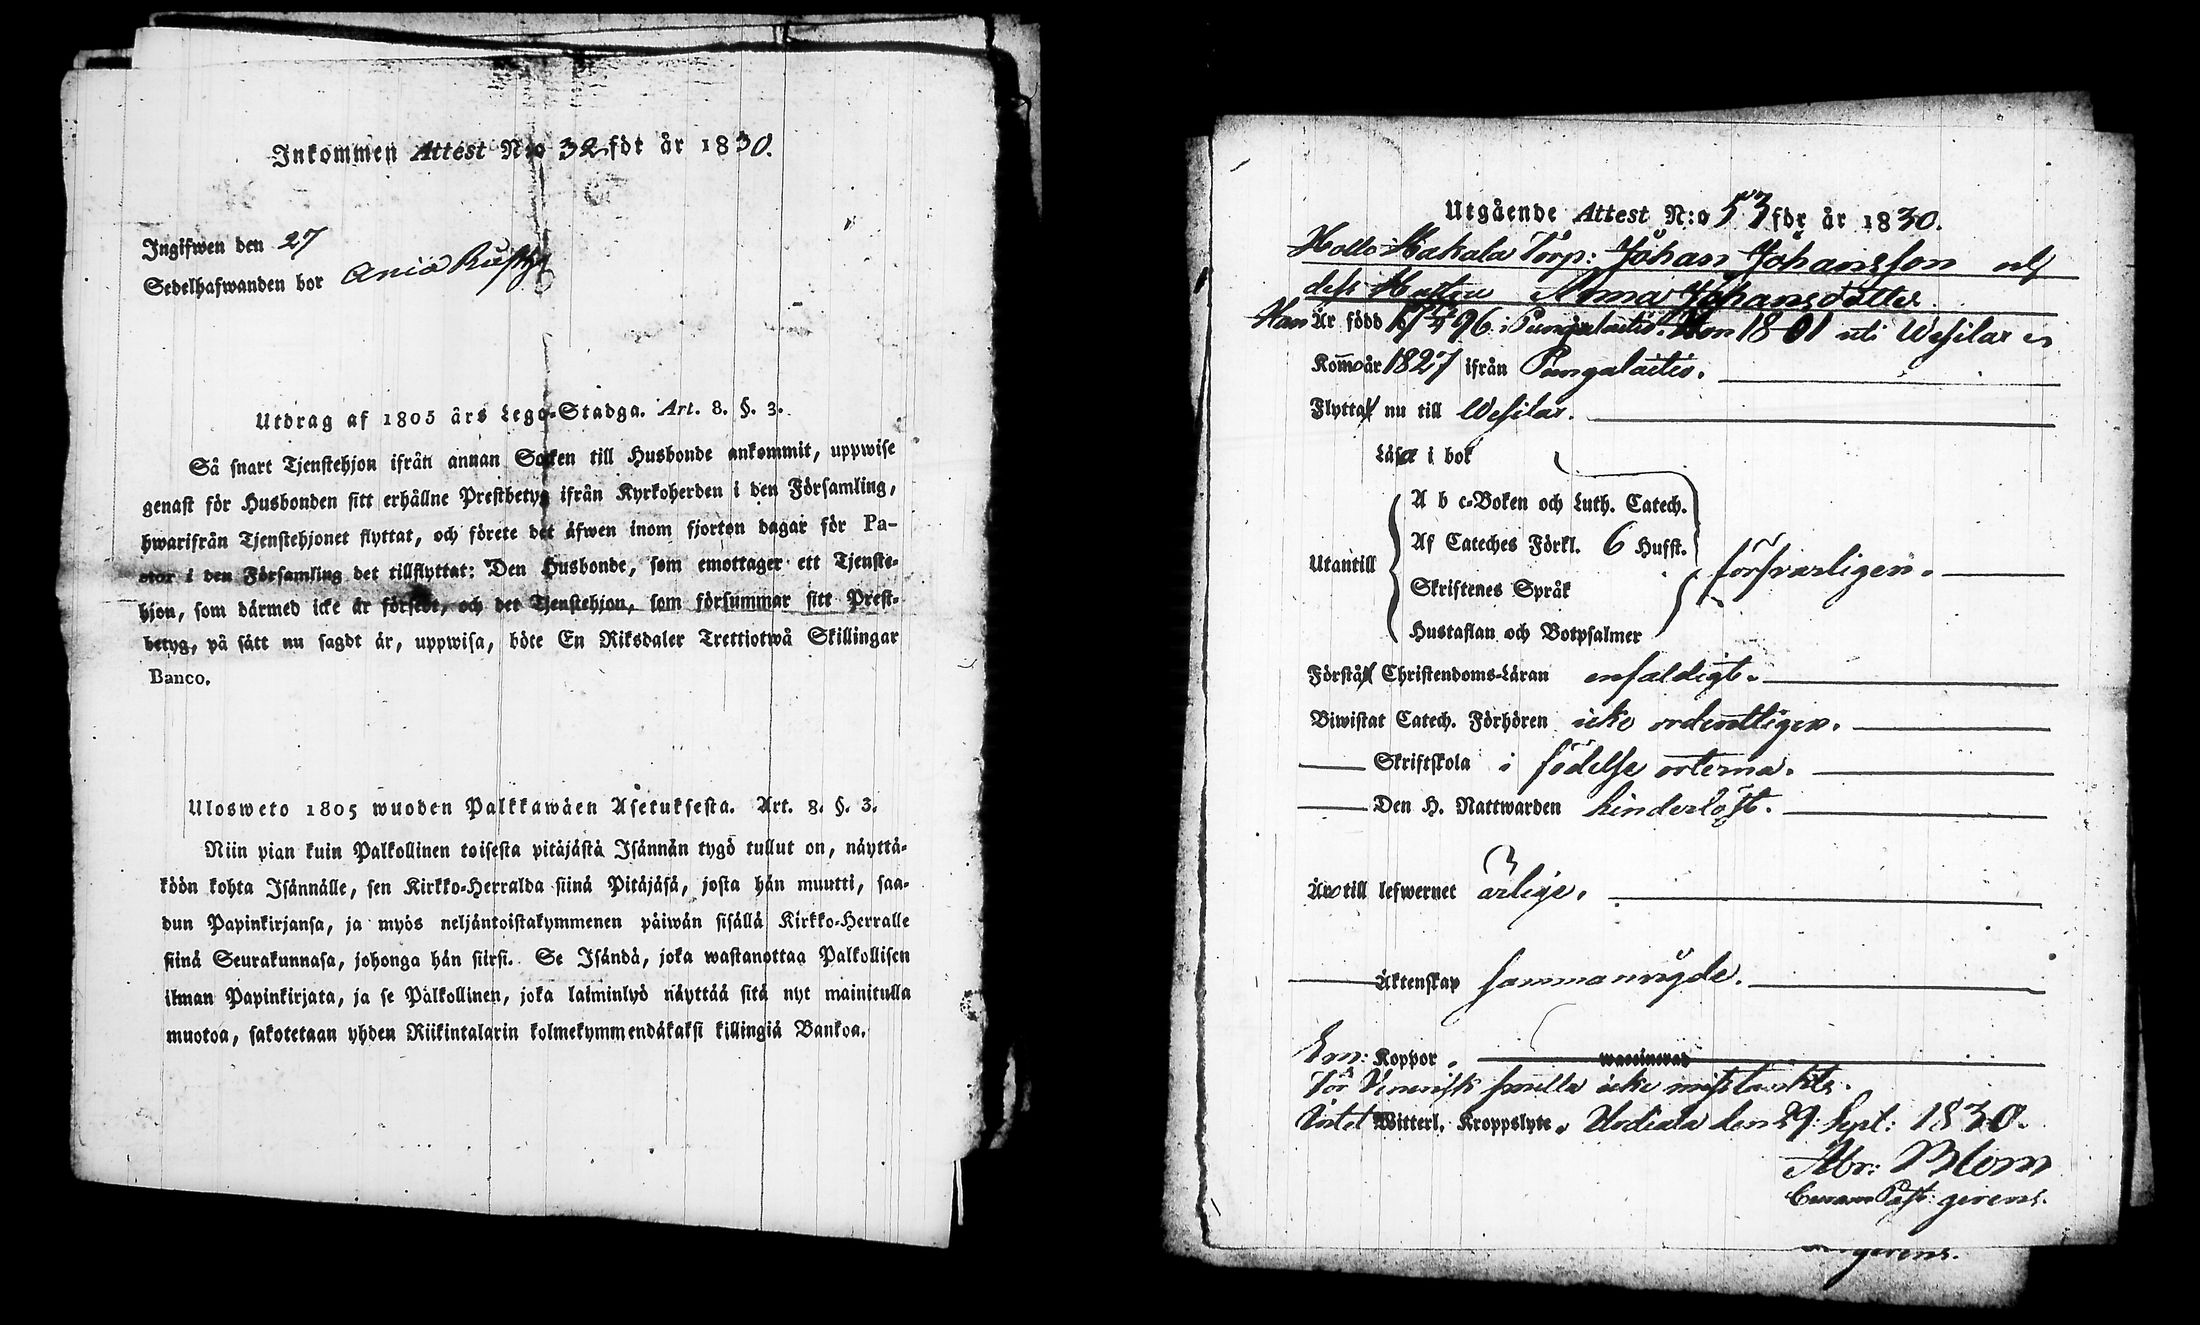 Inkommen Attest N:o 32 för år 1830.
Ingifwen den 27
Sedelhafwanden bor
Utdrag af 1805 års Lego-Stadga. Art. 8. §. 3.
Så snart Tjenstehjon ifrån annan Socken till Husbonde ankommit, uppwise
genast för Husbonden sitt erhållne Prestbetyg ifrån Kyrkoherden i den Församling,
hwarifrån Tjenstehjonet flyttat, och förete det äfwen inom fjorton dagar för Pa-
stor i den Församling det tillflyttat: Den Husbonde, som emottager ett Tjenste-
hjon, som därmed icke är försedt, och det Tjenstehjon, som försummar sitt Prest-
betyg, på sätt nu sagdt är, uppwisa, böte En Riksdaler Trettiotwå Skillingar
Banco.
Ulosweto 1805 wuoden Palkkawäen Asetuksesta. Art. 8. §. 3.
Niin pian kuin Palkollinen toisesta pitäjästä Isännän tygö tullut on, näyttä-
köön kohta Isännälle, sen Kirkko-Herralda siinä Pitäjäsä, josta hän muutti, saa-
dun Papinkirjansa, ja myös neljäntoistakymmenen päiwän sisällä Kirkko-Herralle
siinä Seurakunnasa, johonga hän siirsi. Se Isändä, joka wastanottaa Palkollisen
ilman Papinkirjata, ja se Palkollinen, joka laiminlyö näyttää sitä nyt mainitulla
muotoa, sakotetaan yhden Riikintalarin kolmekymmendäkaksi killingiä Bankoa.
Utgående Attest N:o 53 för år 1830.
Makala Torp: Johan Johansson och
dess Hustru Anna Johansdotter
Han Är född 1796 i Pungalaitio. Hon 1801 uti Wesilax
Kom år 1827 ifrån Pungalaitio.
Flytta nu till Wesilax.
Läsa i bok
A b c-Boken och Luth. Catech.
Af Cateches Förkl. 6 Hufst.
Utantill försvarligen.
Skriftenes Språk
Hustaflan och Botpsalmer
Förstå Christendoms-Läran enfaldigt.
Biwistat Catech. Förhören icke ordentligen.
Skriftskola i födelse orterna.
Den H. Nattwarden hinderlöst.
Äro till lefwernet ärlige.
Äktenskap sammanvigde.
Koppor, waccinerad
För Venerisk smitta icke misstänkte.
Intet Witterl. Kroppslyte. den 29 Sept: 1830.
Abr: Blom
Past: gerens.
gerens.